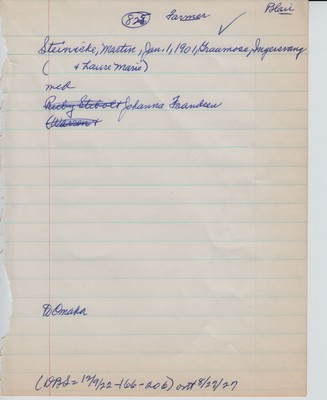 828 Farmer Blair
Steinicke, Martin, Jan. 1, 1901, Graumose, Ingersvang
( + Laure Marie)
med
Ruby Stibolt + Johanna Frandsen
(Warren +
D Omaha
(DBS = 12/9/22 - 166 - 206) ord 8/27/27